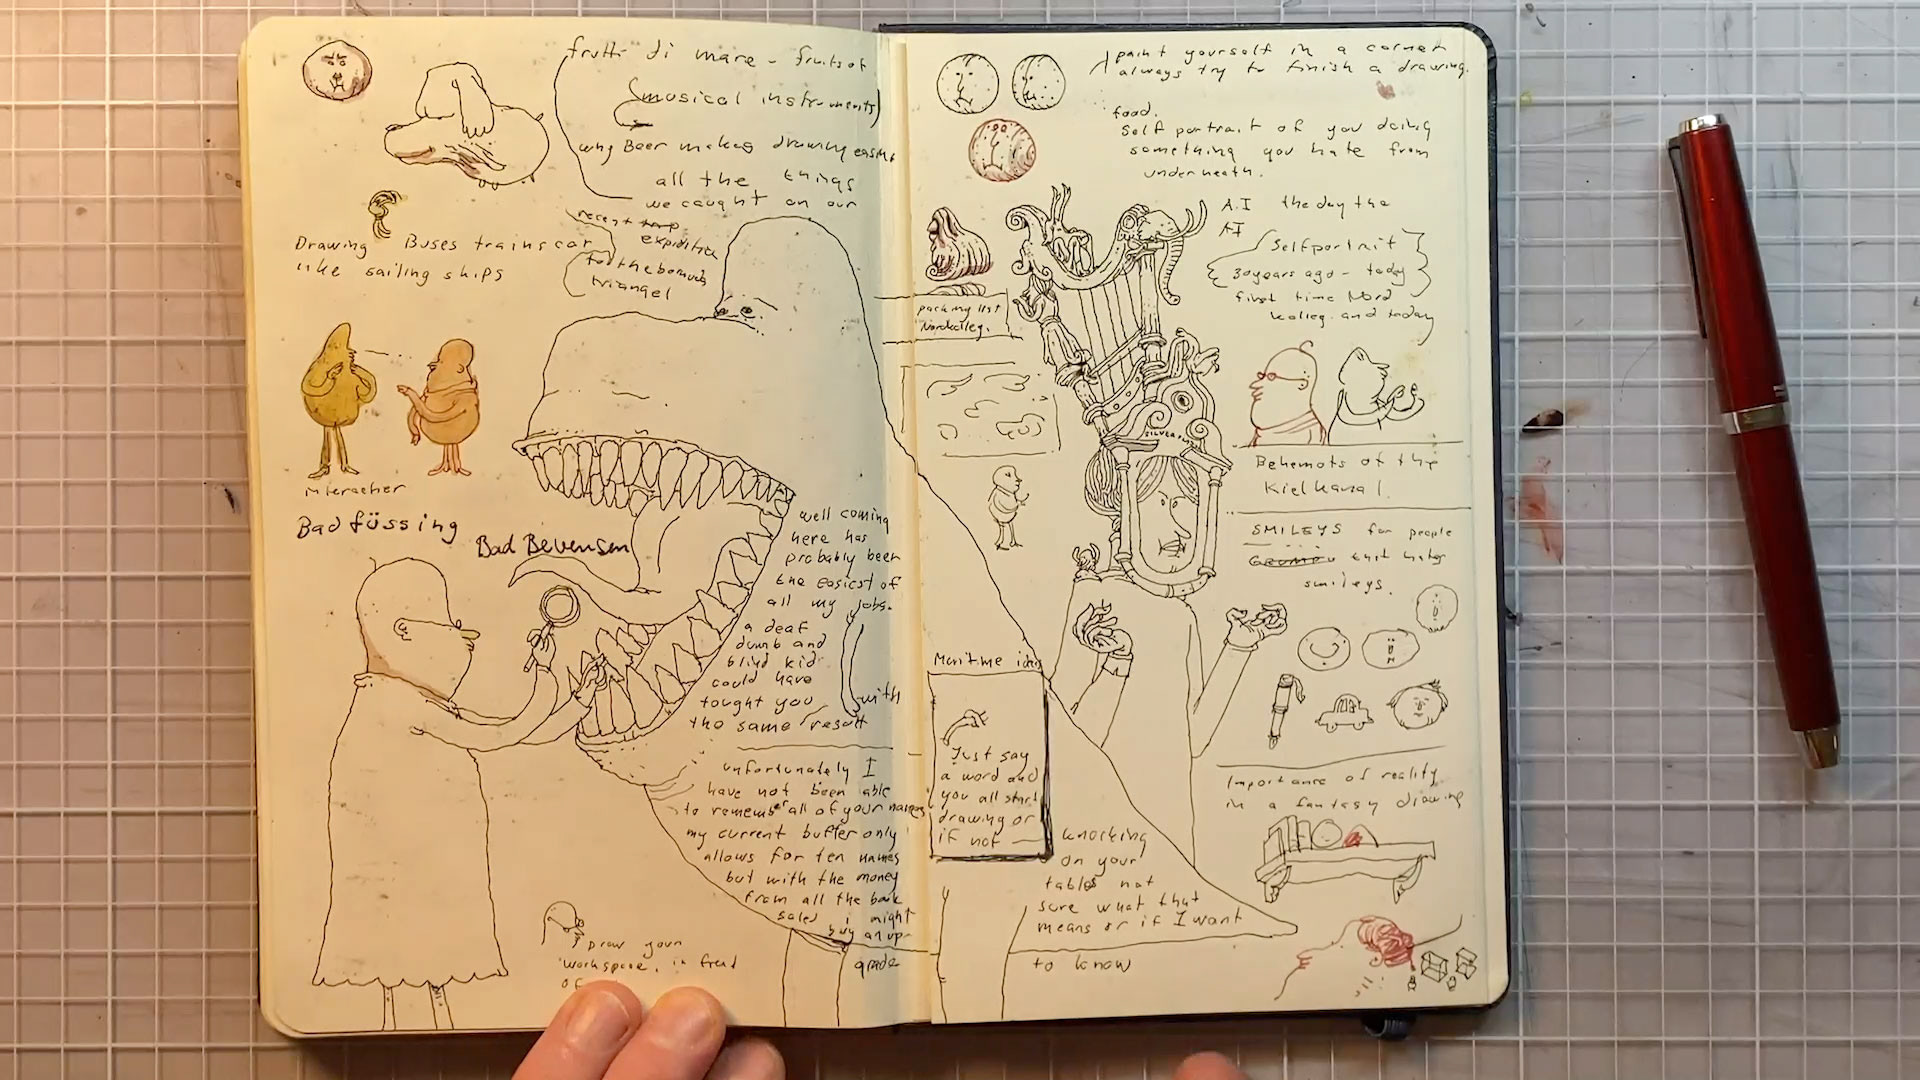 frutti di mare - fruits of
(musical instruments)
why Beer makes drawing easier
all the things
we caught on our
recent trip
expidition
for the bermuda
triangel
Drawing Buses trains car
like sailing ships
Bad füssing
Bad Bevensen
well coming
here has
probably been
the easiest of
all my jobs.
a deaf
dumb and
blind kid
could have
tought you with
the same result
unfortunately I
have not been able
to remember all of your names
my current buffer only
allows for ten names
but with the money
from all the book
sales i might
buy an up-
grade
Draw your
workspace, in
of
paint yourself in a corner
always try to finish a drawing.
food.
Self portrait of you doing
something you hate from
underneath.
A.I the day the
AI
Selfportrait
30 years ago - today
first time Nord
kolleg. and today
pack my list
Nordkolleg.
SILVER
Behemots of the
Kiel Kanal.
SMILEYS for people
Grumpy that hates
smileys.
Maritime
Just say
a word and
you all start
drawing or
if not —
knocking
on your
tables not
sure what that
means or if I want
to know
Importance of reality
in a fantasy drawing